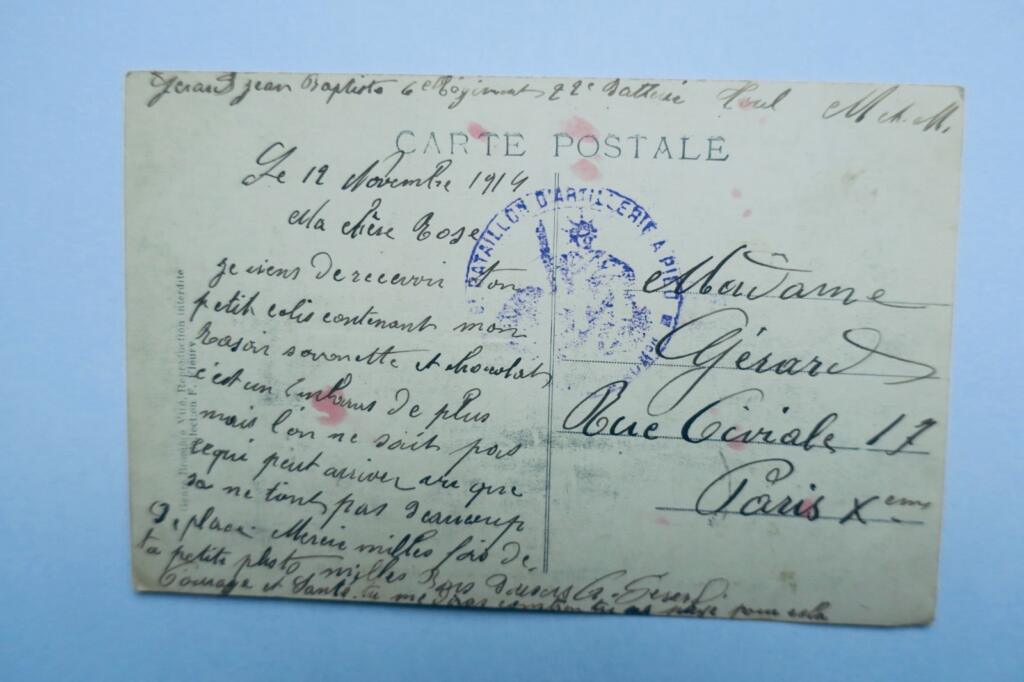 Gérard Jean Baptiste 6e Régiment 22e Batterie Toul M et M.
CARTE POSTALE
Le 12 Novembre 1914
Ma Chère Rose
BATAILLON D'ARTILLERIE A PIED
je viens de recevoir ton
petit colis contenant mon
Rasoir savonette et chocolat
c'est un embarras de plus
mais l'on ne sait pas
cequi peut arriver vu que
sa ne tient pas beaucoup
De place. Merci milles fois de
ta petite photo milles Bons
Courage et Santé. tu me pour cela
Madame
Gérard
Rue Civiale 17
Paris Xeme
Reproduction interdite
Collection F. Fleury